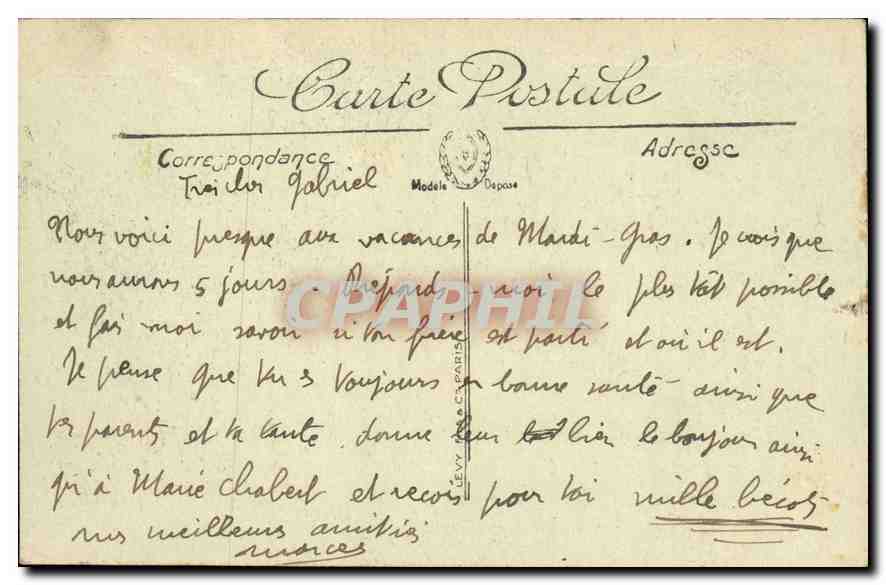 Carte Postale
Correspondance
Adresse
Modèle Déposé
Très cher Gabriel
Nous voici presque aux vacances de Mardi-Gras. Je crois que
nous aurons 5 jours. Réponds moi le plus tôt possible
et fais moi savoir si ton frère est parti et où il est.
Je pense que tu es toujours en bonne santé ainsi que
tes parents et ta tante. donne leur bien le bonjour ainsi
qu'à Marie Chabert et reçois pour toi mille bécots
mes meilleurs amitiés
LEVY FILS & Cie PARIS
CPAPHIL